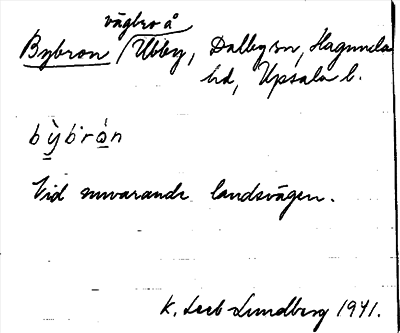 vägbro å
Bybron / Ubby, Dalby sn, Hagunda
hd, Upsala l.
by̠̏brò̠n
Vid nuvarande landsvägen.
K. Leeb-Lundberg 1941.